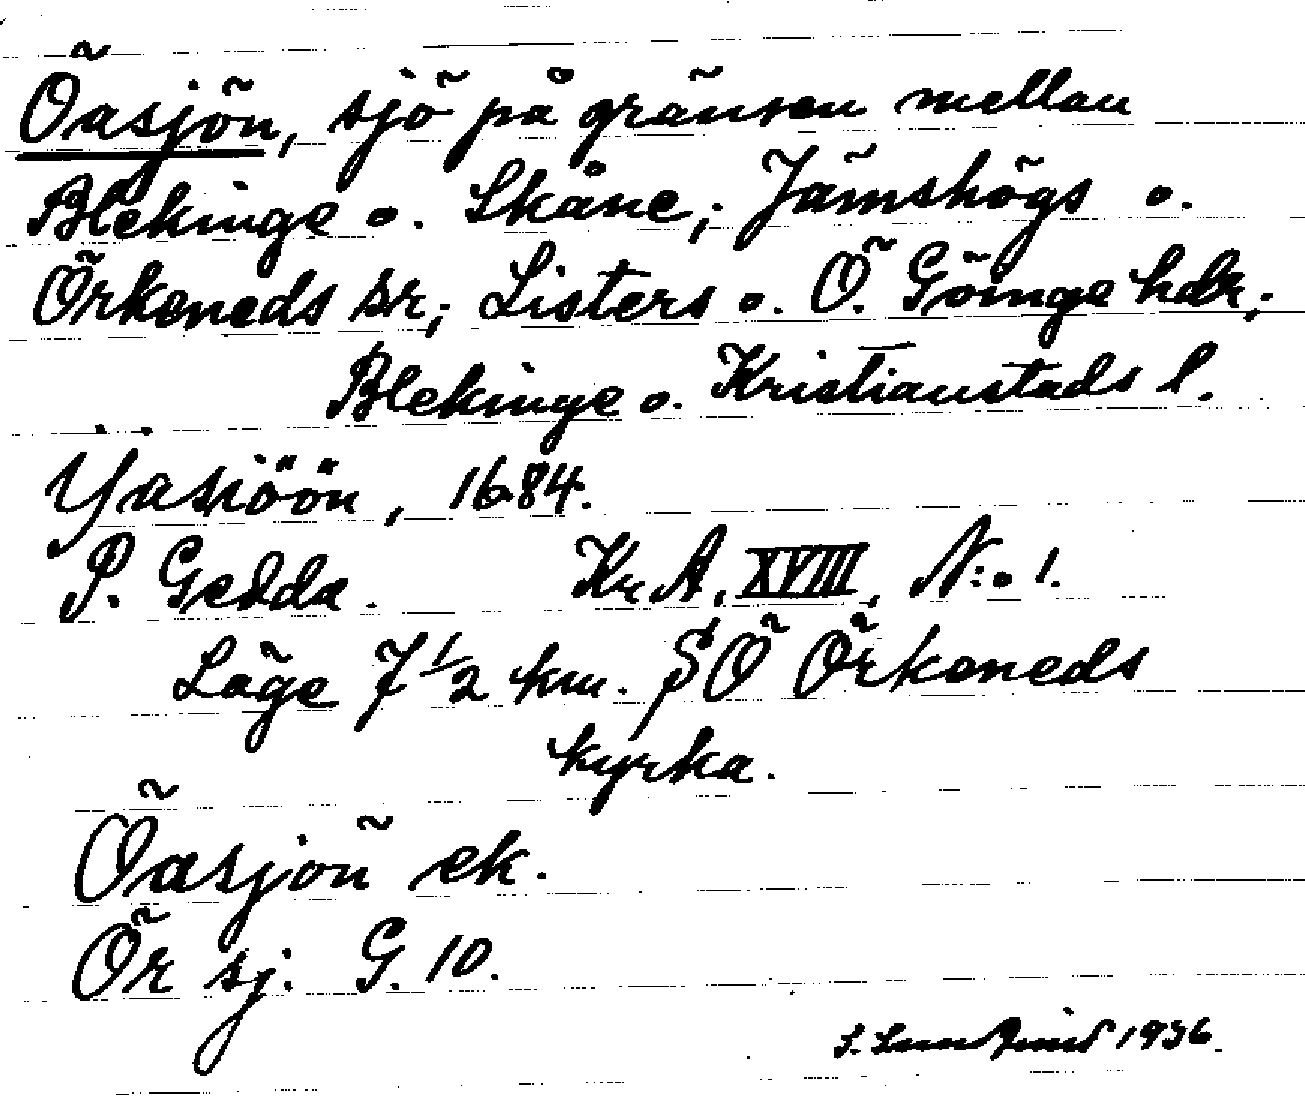 Öasjön, sjö på gränsen mellan
Blekinge o. Skåne; Jämshögs o.
Örkeneds sr; Listers o. Ö. Göinge hdr;
Blekinge o. Kristianstads l.
Ÿasiöön, 1684.
P. Gedda. Kr. A, XVIII, N:o 1.
Läge 7 1/2 km. SÖ Örkeneds
kyrka.
Öasjön ek.
Ör sj. G. 10.
S. Lundqvist 1936.